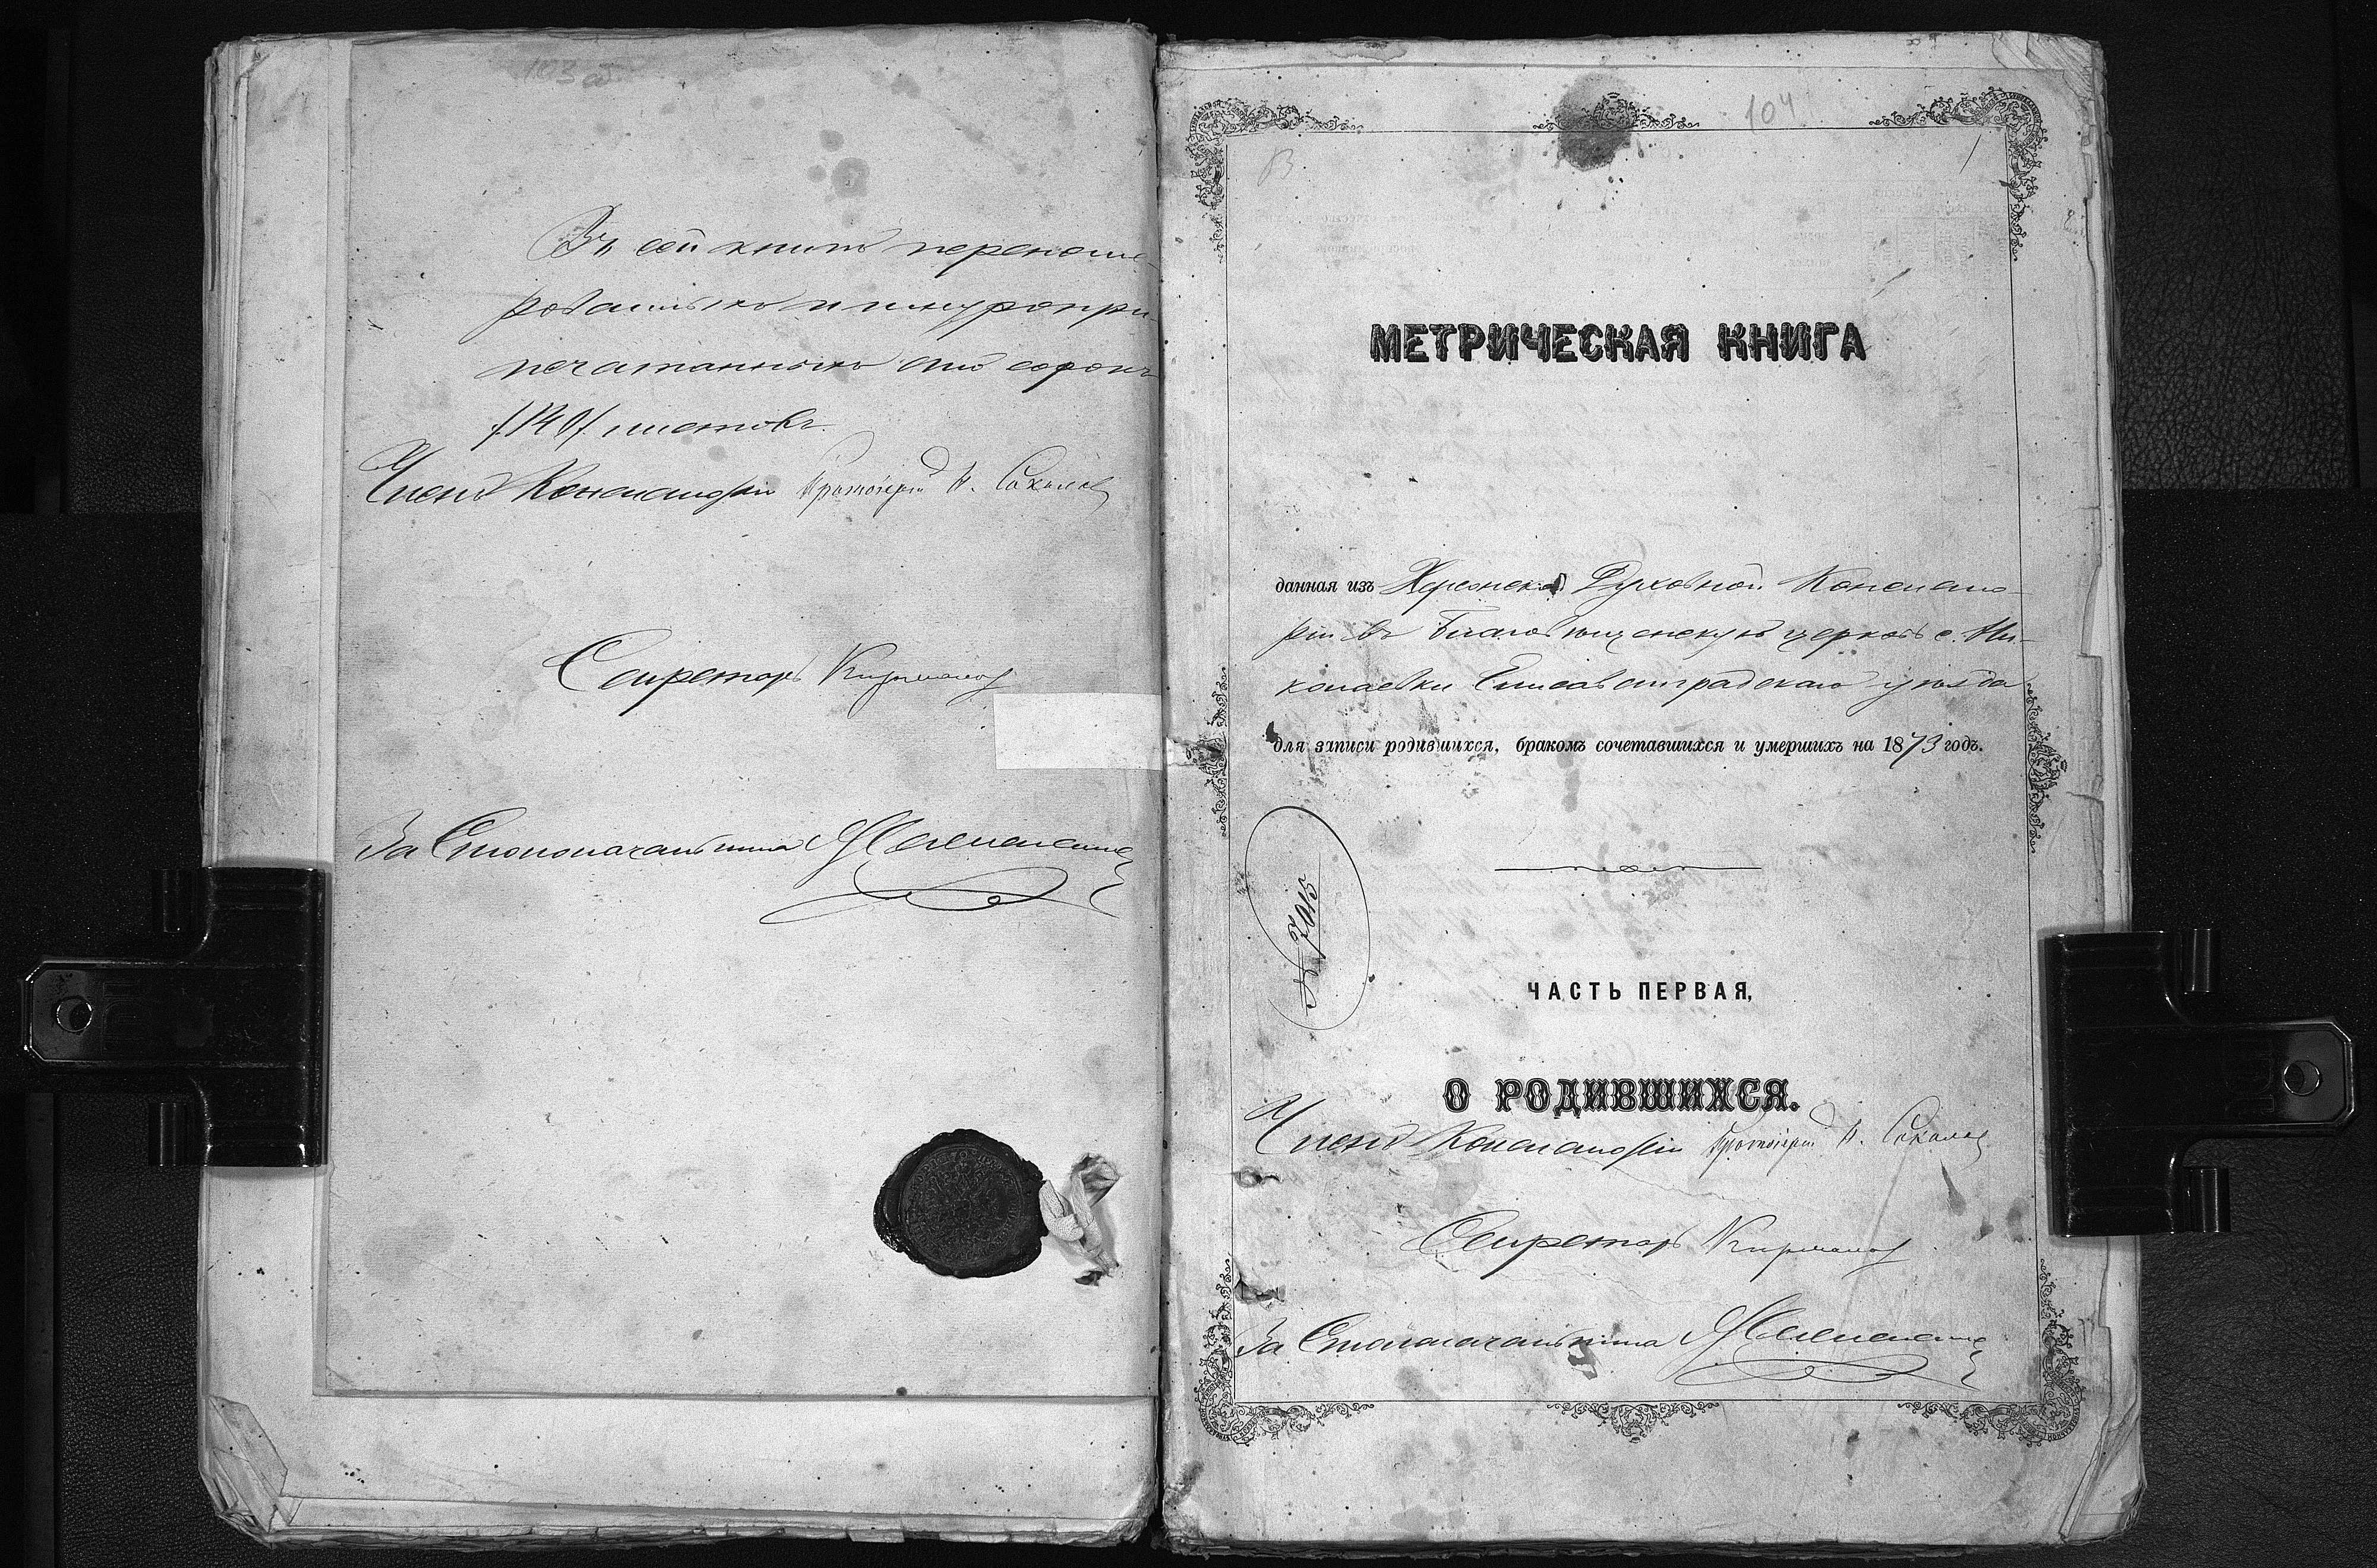 103 об
Въ сей книгѣ перенуме-
рованныхъ и шнуропри-
печатанныхъ сто сорокъ
/140/ листовъ.
Членъ Консисторіи Протоіерей Н. Соколов
Секретарь
За Столоначальника
104
1
МЕТРИЧЕСКАЯ КНИГА
данная изъ Херсонской Духовной Консисто-
ріи въ Благовѣщенскую церковь с. Ни-
колаевки Елисаветградскаго уѣзда
для записи родившихся, бракомъ сочетавшихся и умершихъ на 1873 годъ.
№ 7015
ЧАСТЬ ПЕРВАЯ,
О РОДИВШИХСЯ.
Членъ Консисторіи Протоіерей Н. Соколов
Секретарь
За Столоначальника